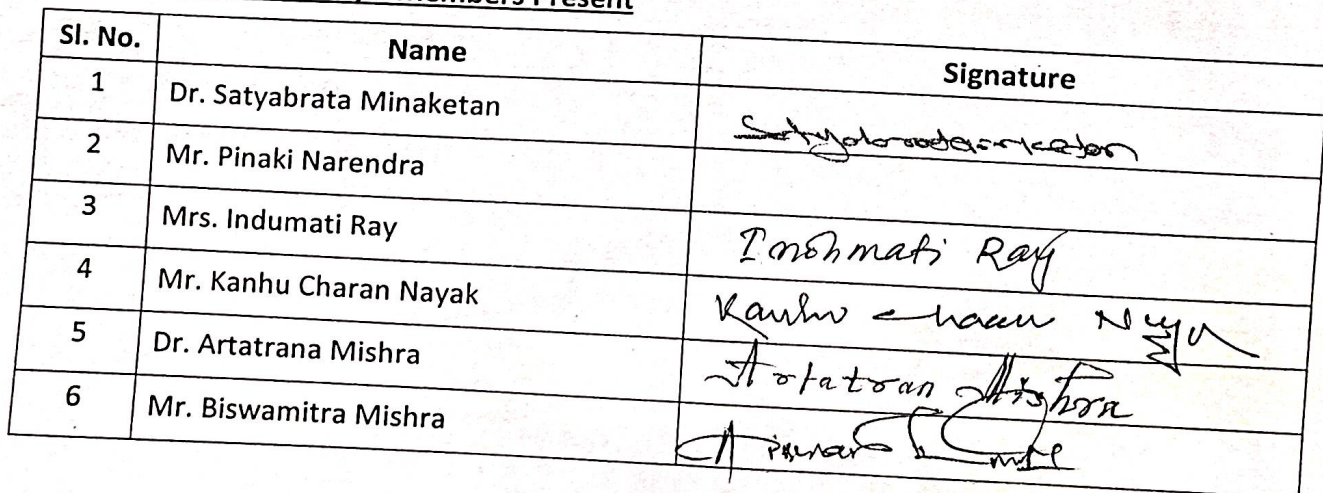 Members Present
Sl. No. Name Signature
1 Dr. Satyabrata Minaketan
2 Mr. Pinaki Narendra
3 Mrs. Indumati Ray Indumati Ray
4 Mr. Kanhu Charan Nayak Kanhu Charan
5 Dr. Artatrana Mishra Artatran Mishra
6 Mr. Biswamitra Mishra